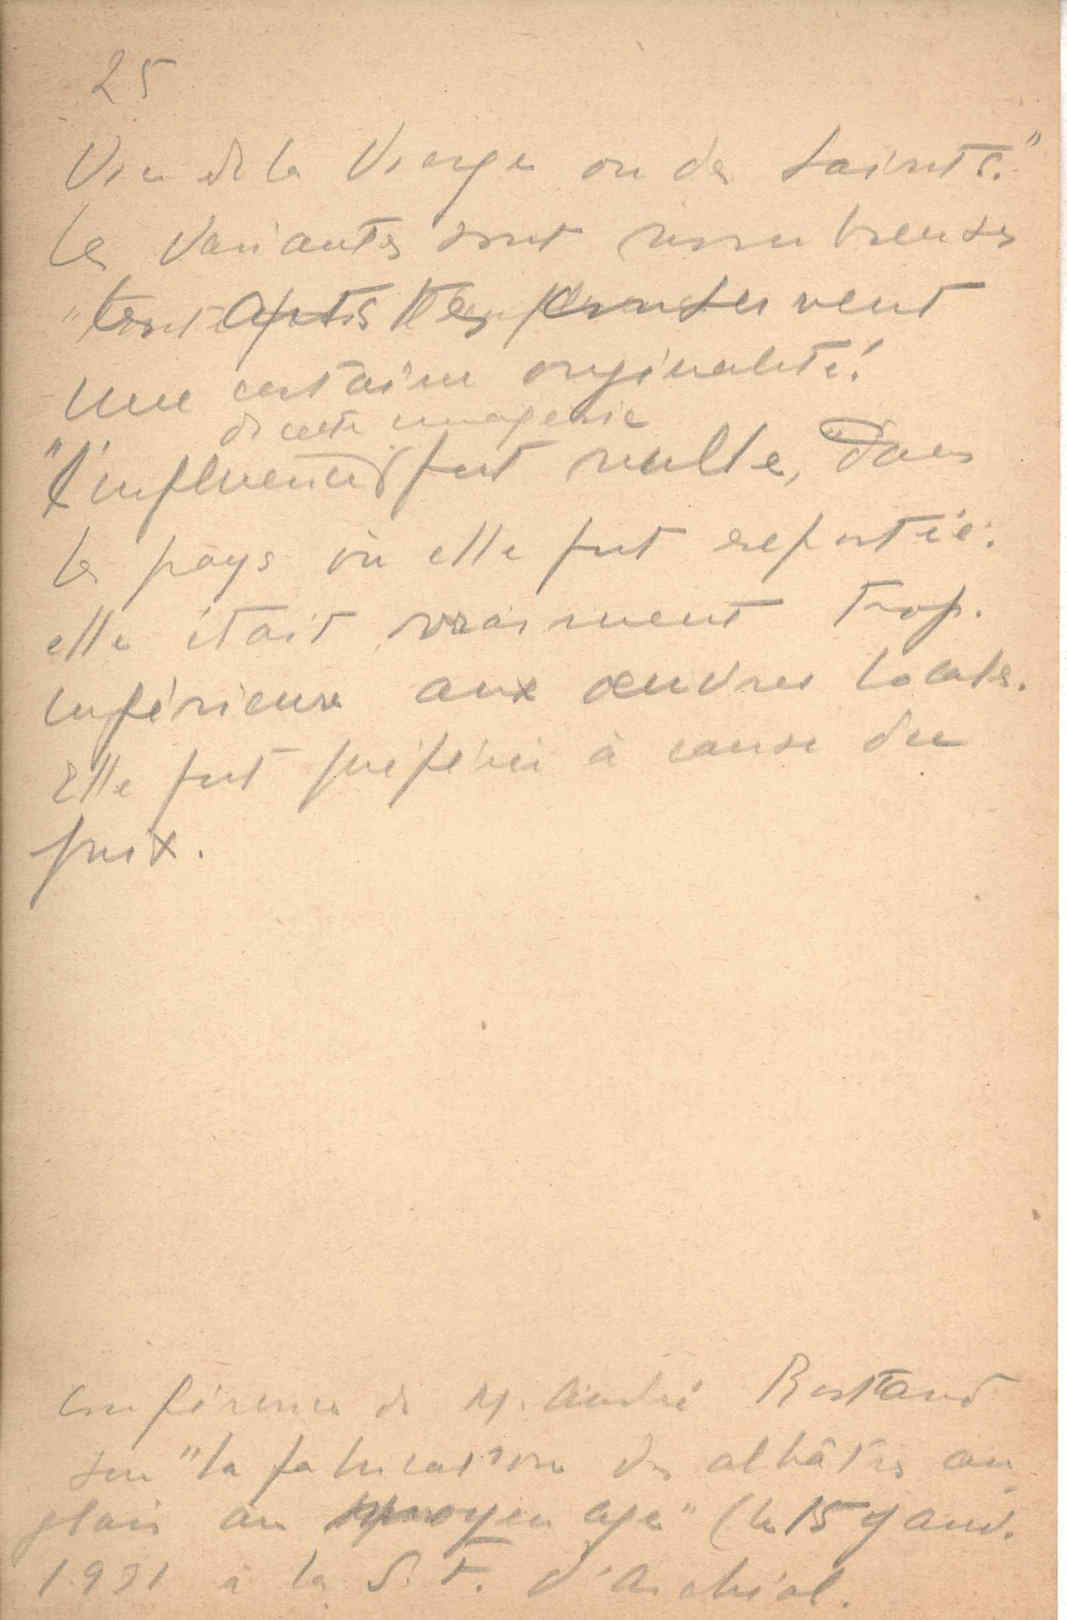 25
Vie de la Vierge ou des Saints."
Les variantes sont nombreuses
conservent
une certaine originalité.
de cette imagerie
"l'influence fut nulle, dans
les pays où elle fut exportée.
elle était vraiment trop
inférieure aux œuvres locales.
Elle fut préférée à cause du
prix.
Conférence de M. André Rostand
sur "la fabrication des albâtres an
glais au moyen age" (le 15 janv.
1931 à la S. F. d'Archéol.